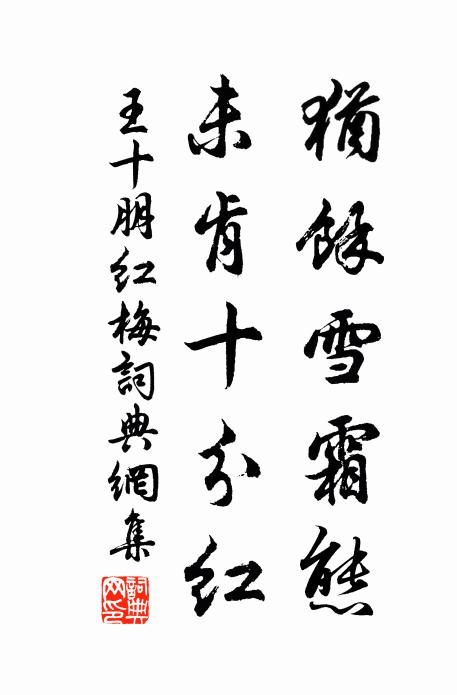 猶餘雪霜態
未肯十分紅
王十朋紅梅詞典網集
詞典網印